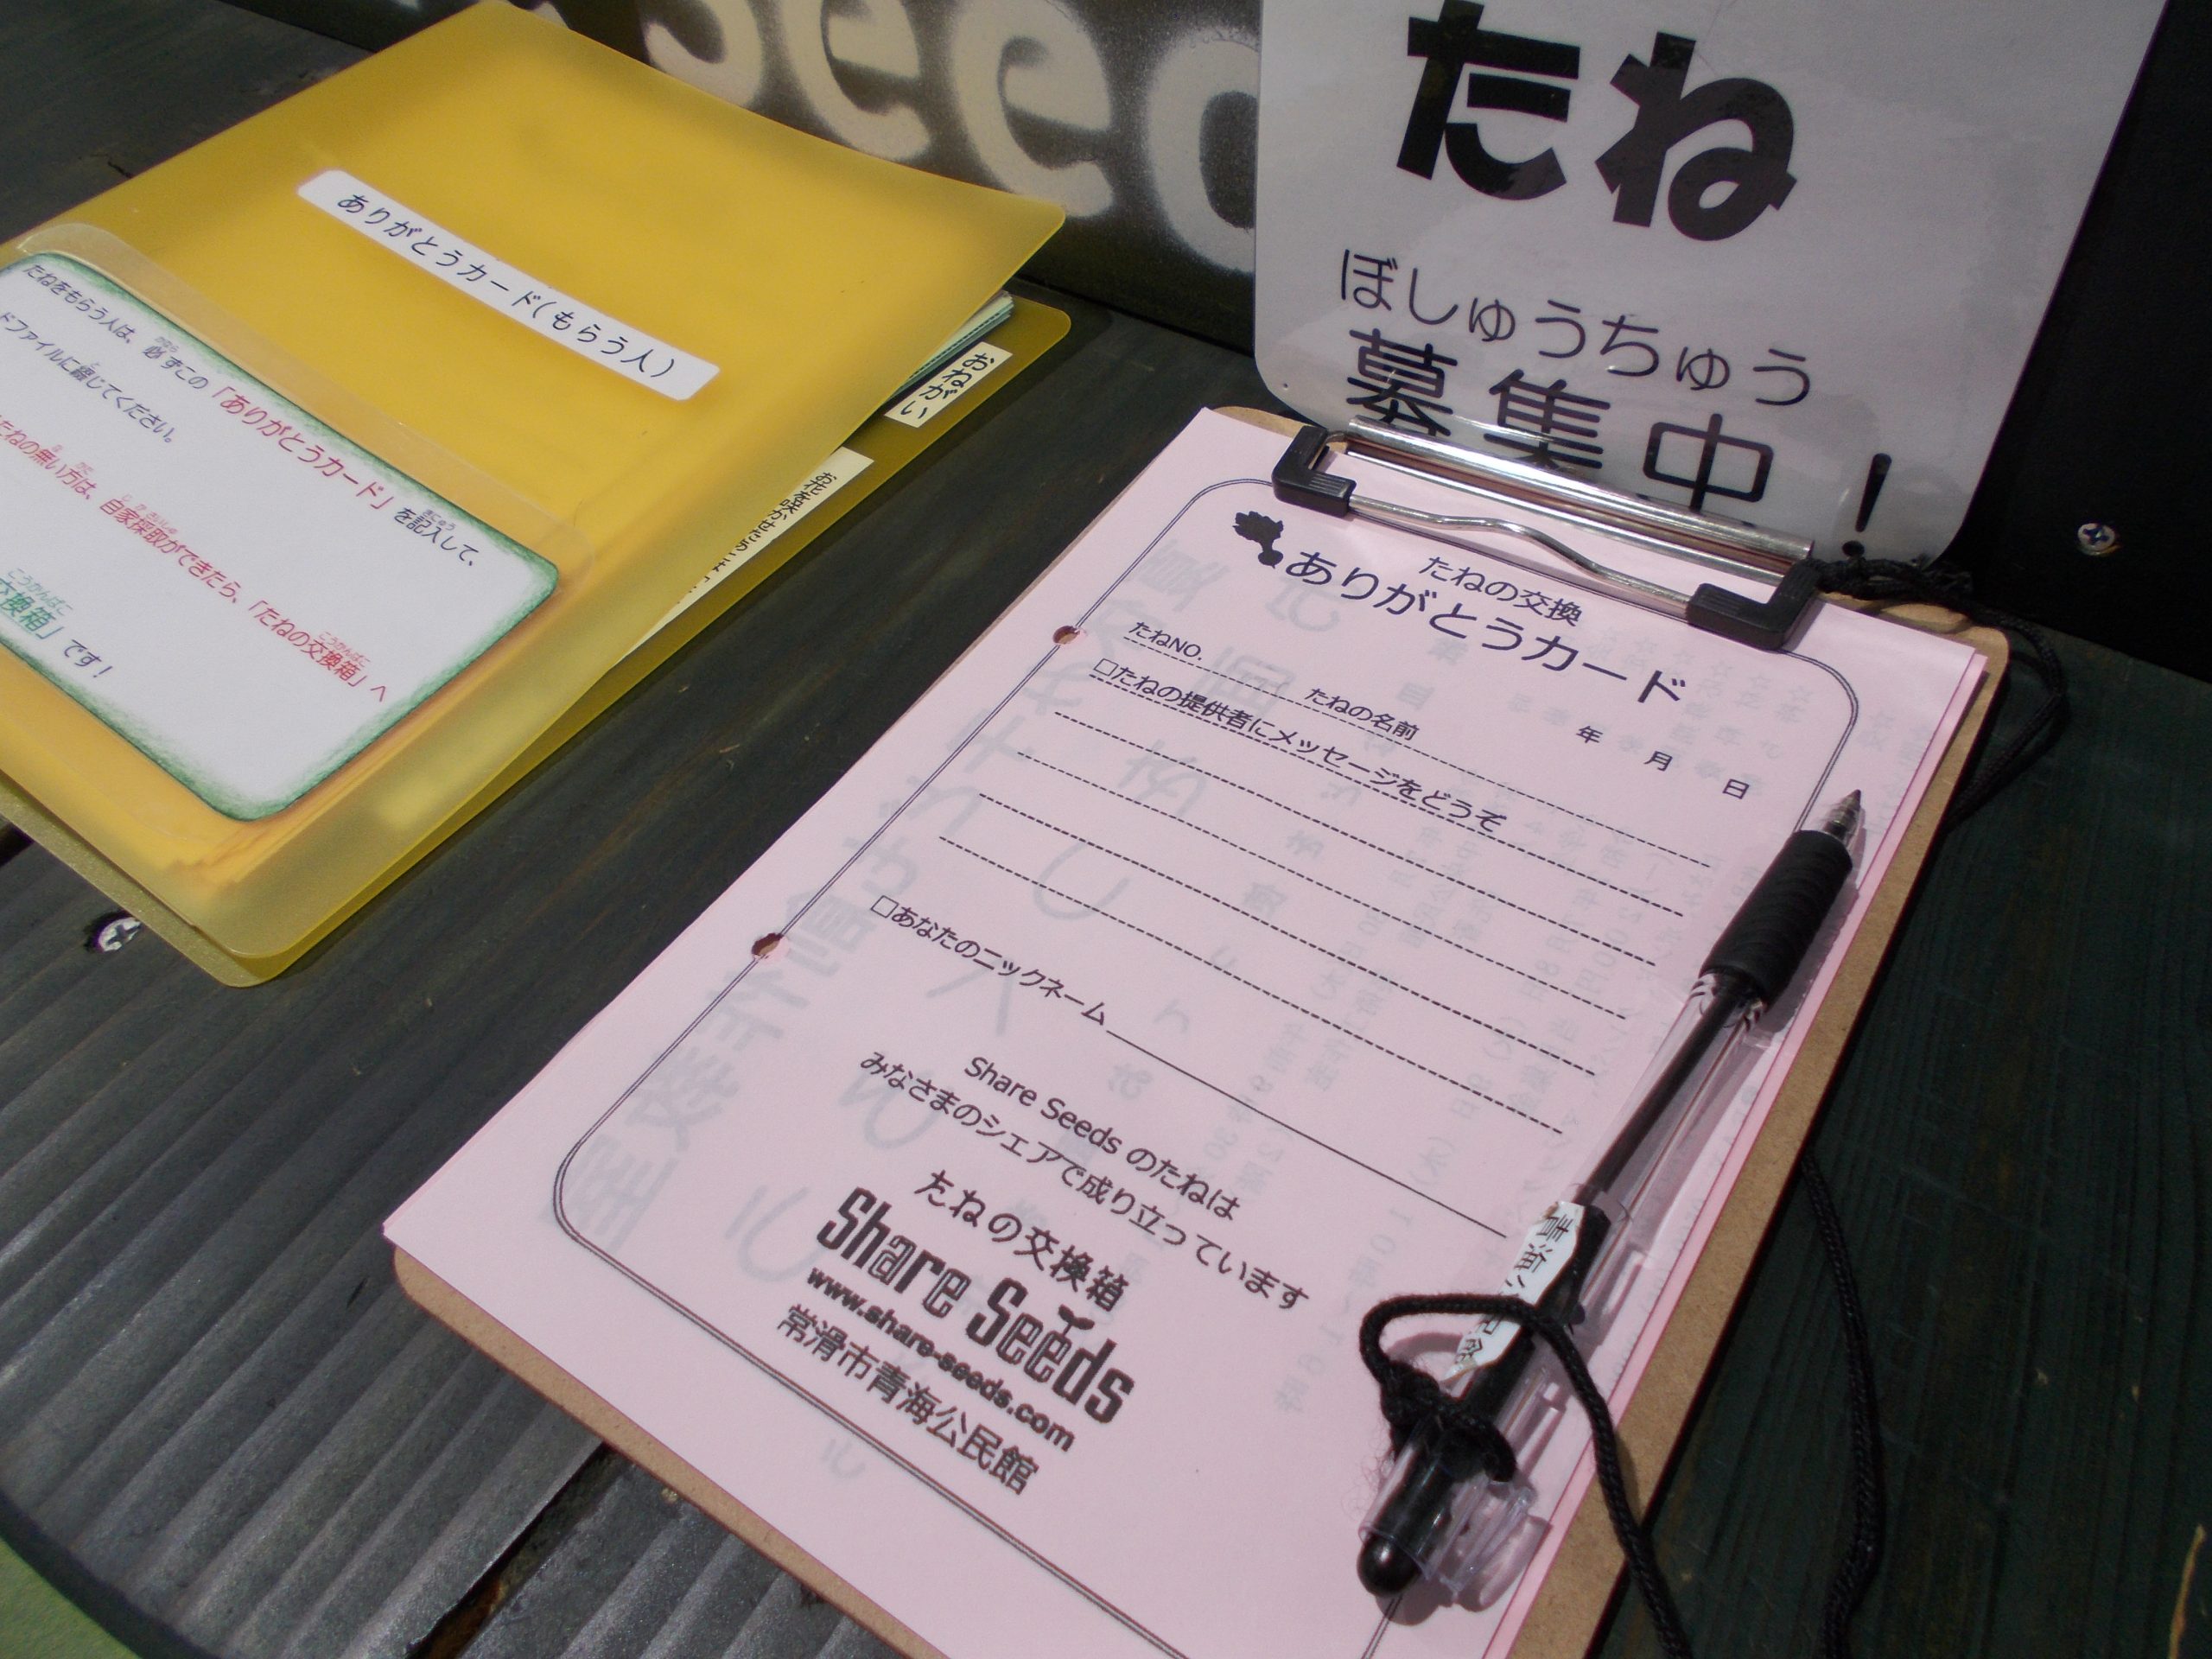 Seed
たね
ぼしゅうちゅう
募集中!
ありがとうカード(もらう人)
おねがい
お花を咲かせたら
たねをもらう人は、必ずこの「ありがとうカード」を記入して、
ドファイルに綴じてください。
たねの無い方は、自家採取ができたら、「たねの交換箱」へ
交換箱」です!
たねの交換
ありがとうカード
年 月 日
たねNO. たねの名前
□たねの提供者にメッセージをどうぞ
□あなたのニックネーム
Share Seeds のたねは
みなさまのシェアで成り立っています
たねの交換箱
Share Seeds
www.share-seeds.com
常滑市青海公民館
青海公民館